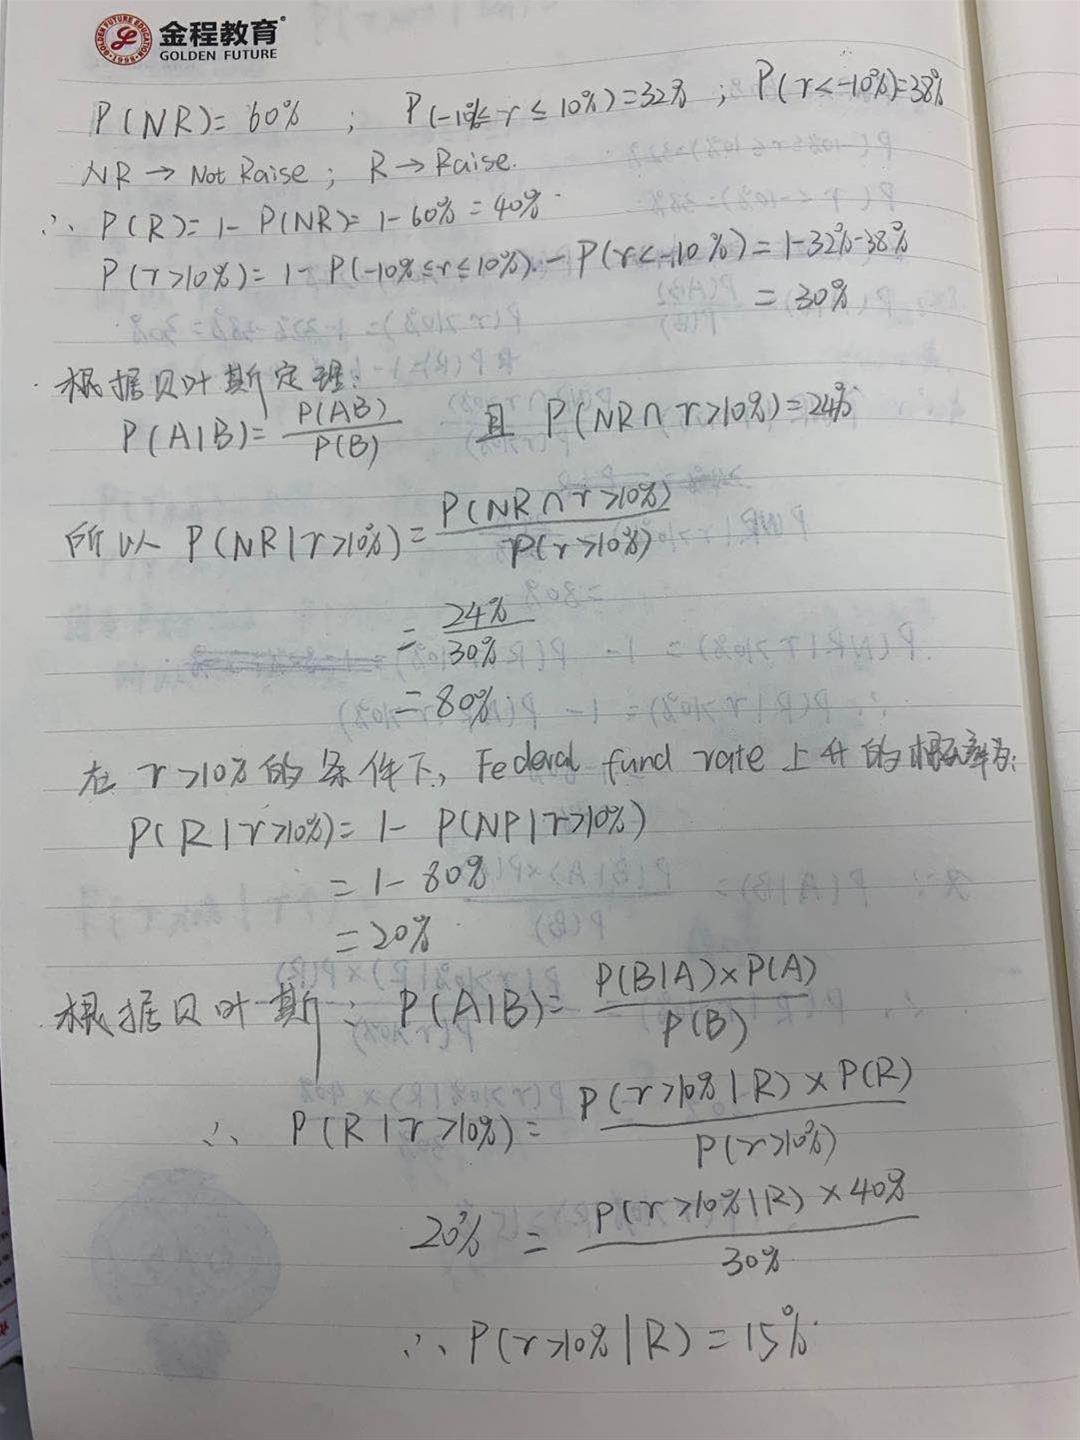 金程教育
GOLDEN FUTURE
P(NR)=60% ; P(-10%≤r≤10%)=32% ; P(r<-10%)=38%
NR→Not Raise ; R→Raise.
∴ P(R)=1-P(NR)=1-60%=40%.
P(r>10%)=1-P(-10%≤r≤10%).-P(r<-10%)=1-32%-38%
=30%
根据贝叶斯定理:
P(A|B)=P(AB)/P(B) 且 P(NR∩r>10%)=24%
所以 P(NR|r>10%)=P(NR∩r>10%)/P(r>10%)
=24%/30%
=80%.
在 r>10% 的条件下, Federal fund rate 上升的概率为:
P(R|r>10%)=1-P(NP|r>10%)
=1-80%
=20%
根据贝叶斯: P(A|B)=P(B|A)×P(A)/P(B)
∴ P(R|r>10%)=P(r>10%|R)×P(R)/P(r>10%)
20%=P(r>10%|R)×40%/30%
∴ P(r>10%|R)=15%.